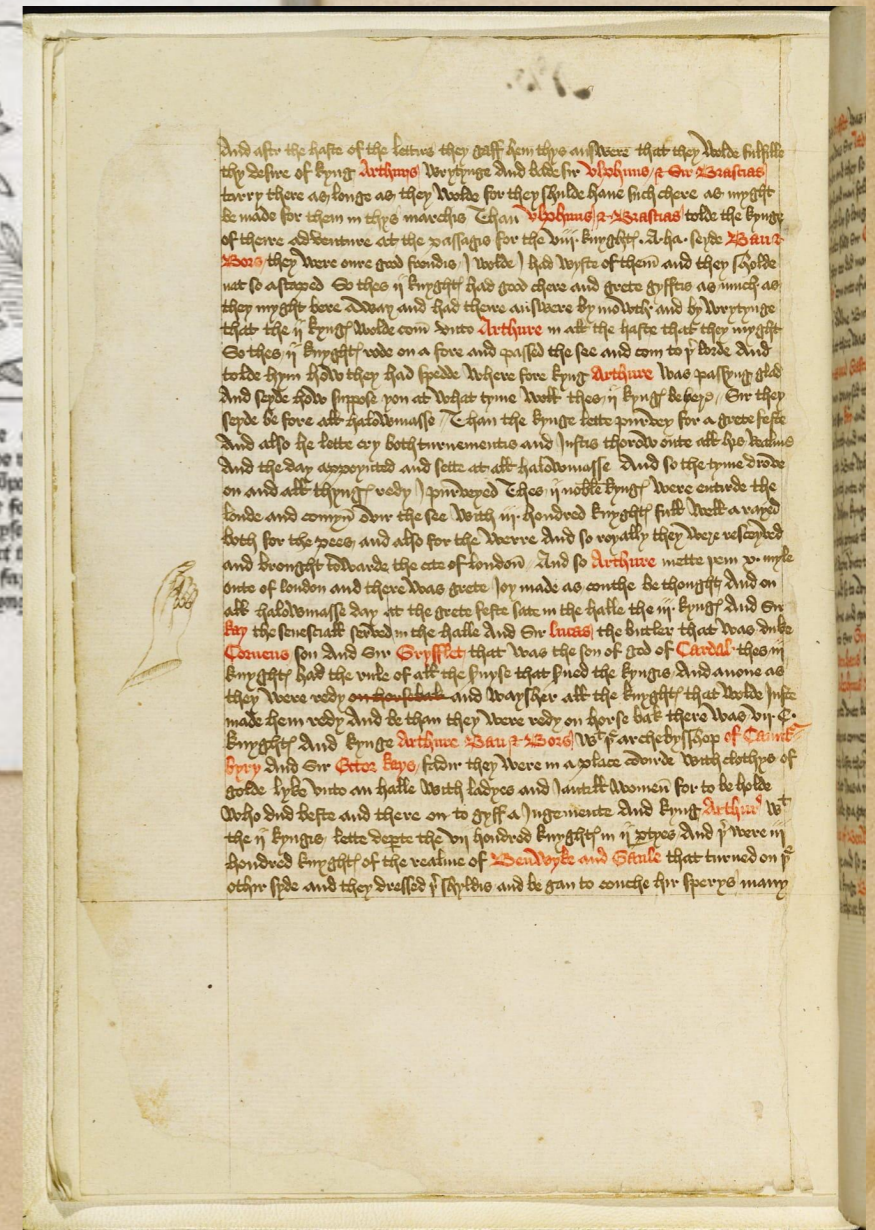 And aftir the haste of the lettirs they gaff hem thys answere that they wolde fulfille
thy desire of kyng Arthurs wrytynge And bade sir Vlphuns / & Sir Brastias
tarry there as longe as they wolde for they shulde have such chere as myght
be made for them in thys marchis Than Vlphuns / & Brastias tolde the kynge
of there adventure at the passagis for the viii knyghtꝭ · A · ha · seyde Ban &
Bors they were oure good frendis I wolde I had wyste of them and they sholde
nat so ascaped So thes ij knyghtꝭ had good chere and grete gyfftis as much as
they myght bere away and had there answere by mowth and by wrytynge
that the ij kyngꝭ wolde com vnto Arthure in all the haste that they myght
So thes ij knyghtꝭ rode on a fore and passed the see and com to þr lorde And
tolde hym how they had spedde where fore kyng Arthure was passyng glad
And seyde how suppose you at what tyme woll thes ij kyngꝭ be here Sir they
seyde be fore all halowmasse Than the kynge lette purvey for a grete feste
And also he lette cry both turnementis and Justis thorow oute all his realme
And the day appoynted and sette at all halowmasse And so the tyme drove
on and all thyngꝭ redy I purveyed Thes ij noble kyngꝭ were entirde the
londe and comyn ovir the see with iij hondred knyghtꝭ full well arayed
both for the pees and also for the werre And so royally they were resceyved
and brought towarde the cite of london And so Arthure mette hem x · myle
oute of london and there was grete Joy made as couthe be thought And on
all halowmasse day at the grete feste sate in the halle the iij kyngꝭ And Sir
Kay the senesciall served in the halle And Sir Lucas the butler that was duke
Corneus son And Sir Gryfflet that was the son of god of Cardal thes iij
knyghtꝭ had the rule of all the servyse that served the kyngis And anone as
they were redy on horse bak and waysher all the knyghtꝭ that wolde Juste
made hem redy And be than they were redy on horse bak there was vij · C ·
knyghtꝭ And kynge Arthure Ban & Bors wt þe archebysshop of Caunt
byry And Sir Ector Kays fadir they were in a place coverde with clothys of
golde lyke vnto an halle with ladyes and Jantill women for to be holde
who dud beste and there on to gyff a Jugemente And kyng Arthur wt
the ij kyngis lette departe the vij hondred knyghtꝭ in ij partyes And þr were iij
hondred knyghtꝭ of the realme of Benwyke and Gaule that turned on þe
othir syde and they dressed þr shyldis and be gan to couche hir sperys many